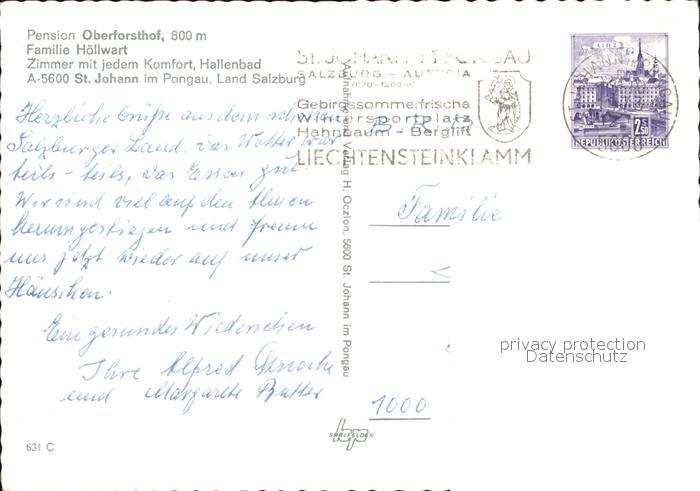 Pension Oberforsthof, 800 m
Familie Höllwart
Zimmer mit jedem Komfort, Hallenbad
A-5600 St. Johann im Pongau, Land Salzburg
Herzliche Grüße aus dem schönen
Salzburger Land. Das Wetter war
teils - teils, das Essen gut.
Wir sind viel auf den Almen
herumgestiegen und freuen
uns jetzt wieder auf unser
Häuschen.
Ein gesundes Wiedersehen
Ihre Alfred
und Margarete
631 C
Aufnahme und Verlag H. Oczlon, 5600 St. Johann im Pongau
ST. JOHANN IM PONGAU
SALZBURG - AUSTRIA
Gebirgssommerfrische
Wintersportplatz
Hahnbaum - Berglift
LIECHTENSTEINKLAMM
LINZ
2.50
REPUBLIK ÖSTERREICH
5600
Familie
1000
SAALFELDEN
privacy protection
Datenschutz